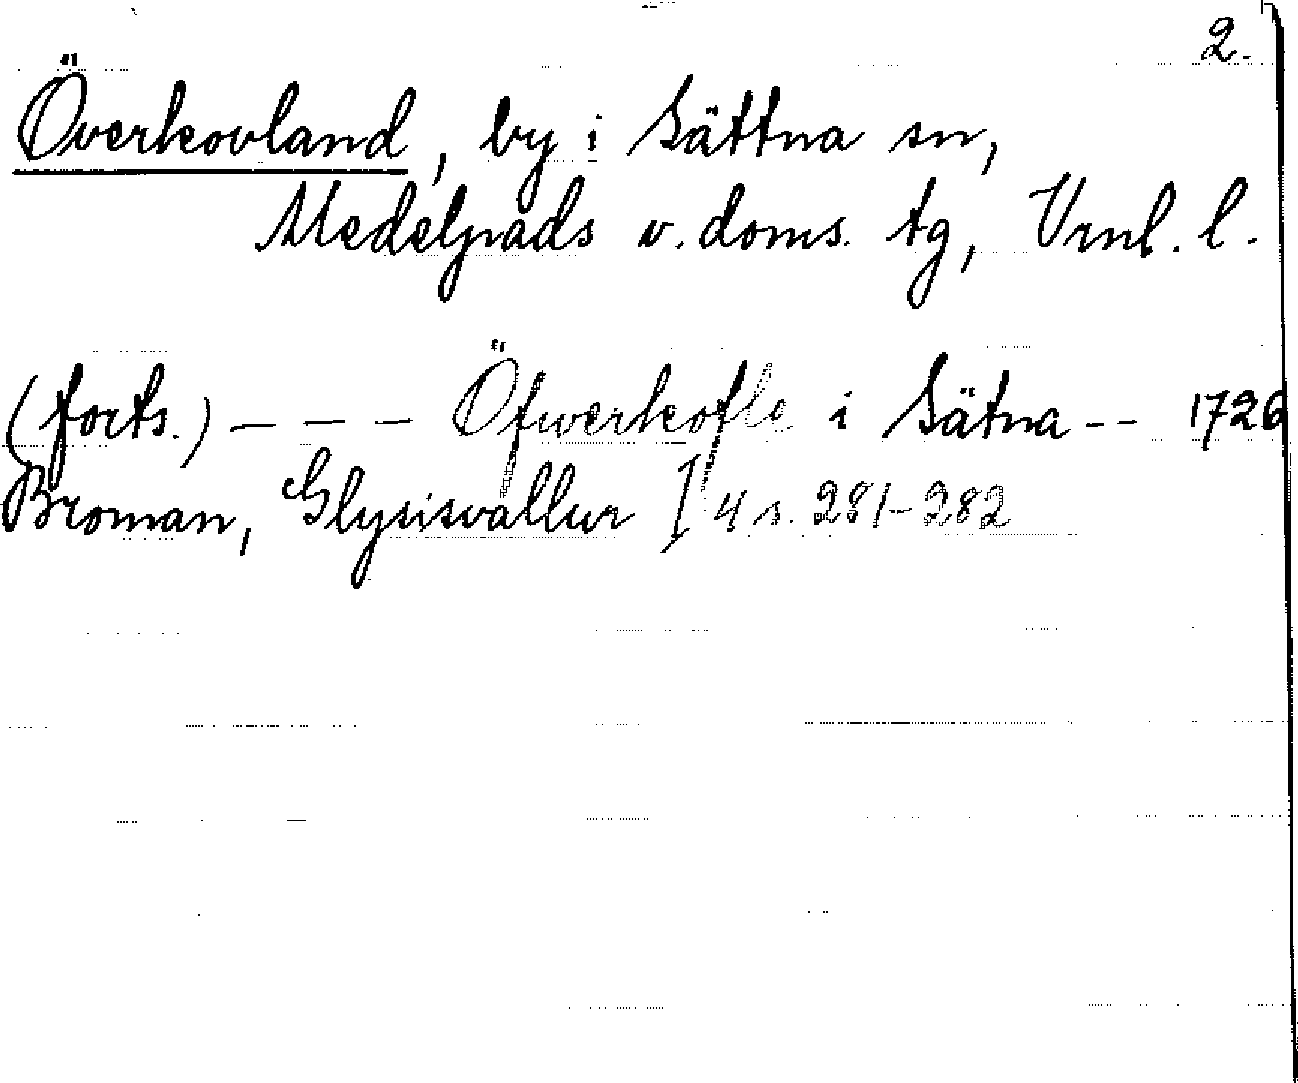 2.
Överkovland, by i Sättna sn,
Medelpads v. doms. tg, Vrnl. l.
(forts.) — — — Öfwerkofle i Sätna -- 1726
Broman, Glysisvallur I 4 s. 281-282